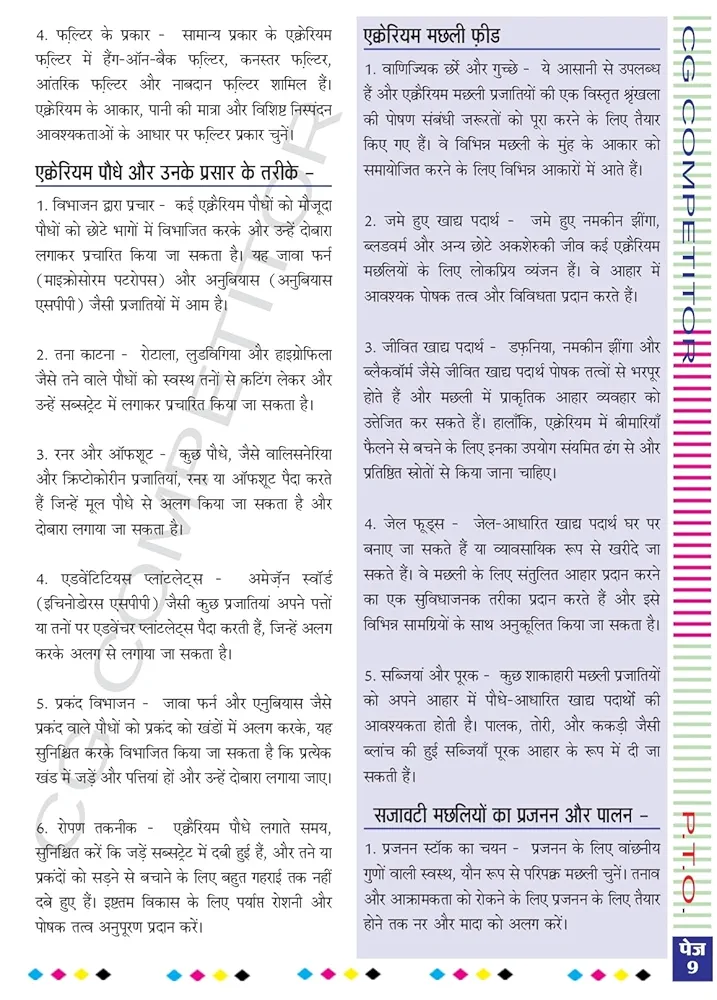 4. फ़िल्टर के प्रकार - सामान्य प्रकार के एक्वेरियम
फ़िल्टर में हैंग-ऑन-बैक फ़िल्टर, कनस्तर फ़िल्टर,
आंतरिक फ़िल्टर और नाबदान फ़िल्टर शामिल हैं।
एक्वेरियम के आकार, पानी की मात्रा और विशिष्ट निस्पंदन
आवश्यकताओं के आधार पर फ़िल्टर प्रकार चुनें।
एक्वेरियम पौधे और उनके प्रसार के तरीके -
1. विभाजन द्वारा प्रचार - कई एक्वैरियम पौधों को मौजूदा
पौधों को छोटे भागों में विभाजित करके और उन्हें दोबारा
लगाकर प्रचारित किया जा सकता है। यह जावा फर्न
(माइक्रोसोरम पटरोपस) और अनुबियास (अनुबियास
एसपीपी) जैसी प्रजातियों में आम है।
2. तना काटना - रोटाला, लुडविगिया और हाइग्रोफिला
जैसे तने वाले पौधों को स्वस्थ तनों से कटिंग लेकर और
उन्हें सब्सट्रेट में लगाकर प्रचारित किया जा सकता है।
3. रनर और ऑफशूट - कुछ पौधे, जैसे वालिसनेरिया
और क्रिप्टोकोरीन प्रजातियां, रनर या ऑफशूट पैदा करते
हैं जिन्हें मूल पौधे से अलग किया जा सकता है और
दोबारा लगाया जा सकता है।
4. एडवेंटिटियस प्लांटलेट्स - अमेज़ॅन स्वॉर्ड
(इचिनोडोरस एसपीपी) जैसी कुछ प्रजातियां अपने पत्तों
या तनों पर एडवेंचर प्लांटलेट्स पैदा करती हैं, जिन्हें अलग
करके अलग से लगाया जा सकता है।
5. प्रकंद विभाजन - जावा फर्न और एनुबियास जैसे
प्रकंद वाले पौधों को प्रकंद को खंडों में अलग करके, यह
सुनिश्चित करके विभाजित किया जा सकता है कि प्रत्येक
खंड में जड़ें और पत्तियां हों और उन्हें दोबारा लगाया जाए।
6. रोपण तकनीक - एक्वैरियम पौधे लगाते समय,
सुनिश्चित करें कि जड़ें सब्सट्रेट में दबी हुई हैं, और तने या
प्रकंदों को सड़ने से बचाने के लिए बहुत गहराई तक नहीं
दबे हुए हैं। इष्टतम विकास के लिए पर्याप्त रोशनी और
पोषक तत्व अनुपूरण प्रदान करें।
एक्वेरियम मछली फ़ीड
1. वाणिज्यिक छर्रे और गुच्छे - ये आसानी से उपलब्ध
हैं और एक्वैरियम मछली प्रजातियों की एक विस्तृत श्रृंखला
की पोषण संबंधी जरूरतों को पूरा करने के लिए तैयार
किए गए हैं। वे विभिन्न मछली के मुंह के आकार को
समायोजित करने के लिए विभिन्न आकारों में आते हैं।
2. जमे हुए खाद्य पदार्थ - जमे हुए नमकीन झींगा,
ब्लडवर्म और अन्य छोटे अकशेरुकी जीव कई एक्वैरियम
मछलियों के लिए लोकप्रिय व्यंजन हैं। वे आहार में
आवश्यक पोषक तत्व और विविधता प्रदान करते हैं।
3. जीवित खाद्य पदार्थ - डफ़निया, नमकीन झींगा और
ब्लैकवॉर्म जैसे जीवित खाद्य पदार्थ पोषक तत्वों से भरपूर
होते हैं और मछली में प्राकृतिक आहार व्यवहार को
उत्तेजित कर सकते हैं। हालाँकि, एक्वेरियम में बीमारियाँ
फैलने से बचने के लिए इनका उपयोग संयमित ढंग से और
प्रतिष्ठित स्रोतों से किया जाना चाहिए।
4. जेल फूड्स - जेल-आधारित खाद्य पदार्थ घर पर
बनाए जा सकते हैं या व्यावसायिक रूप से खरीदे जा
सकते हैं। वे मछली के लिए संतुलित आहार प्रदान करने
का एक सुविधाजनक तरीका प्रदान करते हैं और इसे
विभिन्न सामग्रियों के साथ अनुकूलित किया जा सकता है।
5. सब्जियां और पूरक - कुछ शाकाहारी मछली प्रजातियों
को अपने आहार में पौधे-आधारित खाद्य पदार्थों की
आवश्यकता होती है। पालक, तोरी, और ककड़ी जैसी
ब्लांच की हुई सब्जियाँ पूरक आहार के रूप में दी जा
सकती हैं।
सजावटी मछलियों का प्रजनन और पालन -
1. प्रजनन स्टॉक का चयन - प्रजनन के लिए वांछनीय
गुणों वाली स्वस्थ, यौन रूप से परिपक्व मछली चुनें। तनाव
और आक्रामकता को रोकने के लिए प्रजनन के लिए तैयार
होने तक नर और मादा को अलग करें।
CG COMPETITOR
P.T.O.
पेज
9
CG COMPETITOR